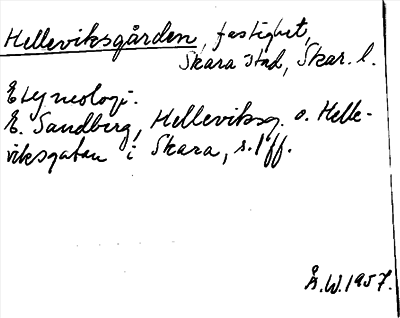 Helleviksgården, fastighet,
Skara stad, Skar. l.
Etymologi.
E. Sandberg, Helleviksg. o. Helle-
viksgatan i Skara, s. 1 ff.
Å.W. 1957.